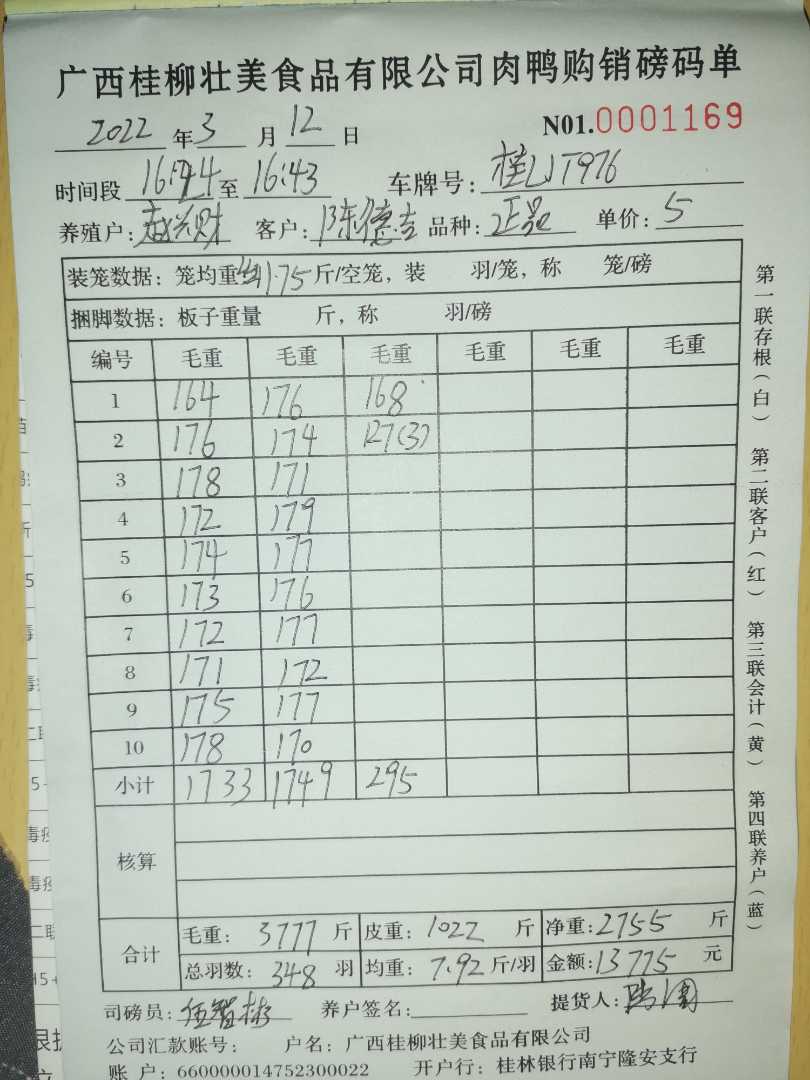 广西桂柳壮美食品有限公司肉鸭购销磅码单
2022 年 3 月 12 日 N01.0001169
时间段 至 16:43 车牌号: 桂 T976
养殖户: 赵兴财 客户: 陈德吉 品种: 正品 单价: 5
装笼数据: 笼均重 41.75 斤/空笼, 装 羽/笼, 称 笼/磅
捆脚数据: 板子重量 斤, 称 羽/磅
编号 毛重 毛重 毛重 毛重 毛重 毛重
1 164 176 168
2 176 174 127(3)
3 178 171
4 172 179
5 174 177
6 173 176
7 172 177
8 171 172
9 175 177
10 178 170
小计 1733 1749 295
核算
合计 毛重: 3777 斤 皮重: 1022 斤 净重: 2755 斤
总羽数: 348 羽 均重: 7.92 斤/羽 金额: 13775 元
司磅员: 伍智彬 养户签名: 提货人:
公司汇款账号: 户名: 广西桂柳壮美食品有限公司
账 户: 660000014752300022 开户行: 桂林银行南宁隆安支行
第一联存根(白) 第二联客户(红) 第三联会计(黄) 第四联养户(蓝)